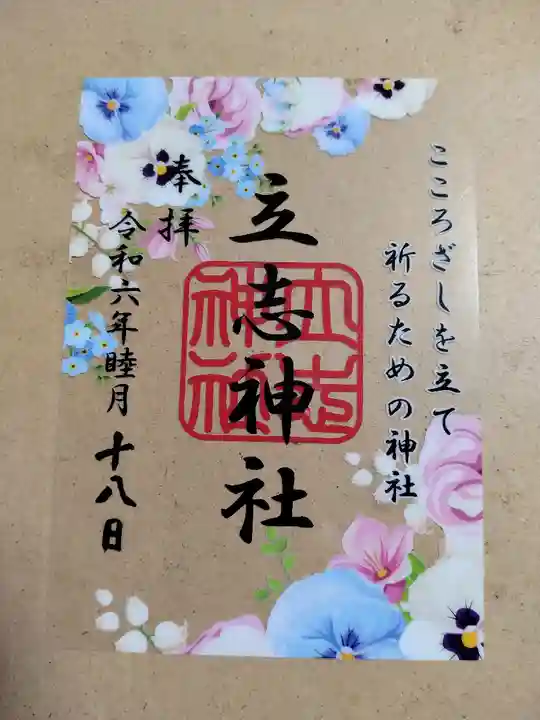 こころざしを立て
祈るための神社
立志神社
立志神社
奉拝
令和六年睦月十八日